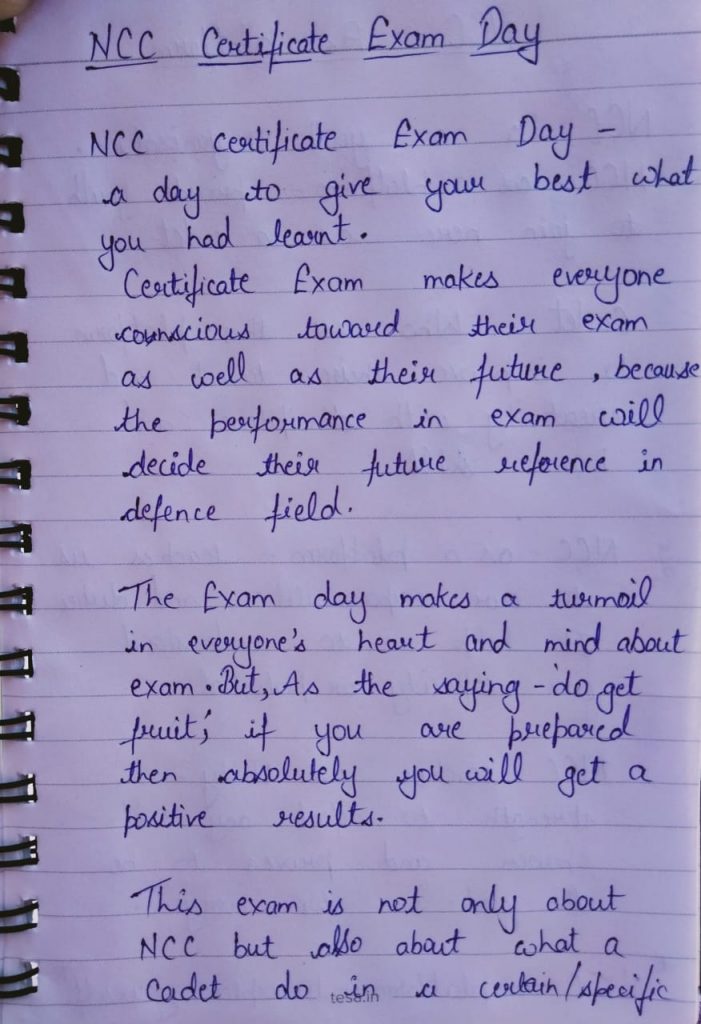 NCC Certificate Exam Day
NCC certificate Exam Day -
a day to give your best what
you had learnt.
Certificate Exam makes everyone
counscious toward their exam
as well as their future, because
the performance in exam will
decide their future reference in
defence field.
The Exam day makes a turmoil
in everyone's heart and mind about
exam. But, As the saying - 'do get
fruit', if you are prepared
then absolutely you will get a
positive results.
This exam is not only about
NCC but also about what a
Cadet do in a certain/specific
tesa.in